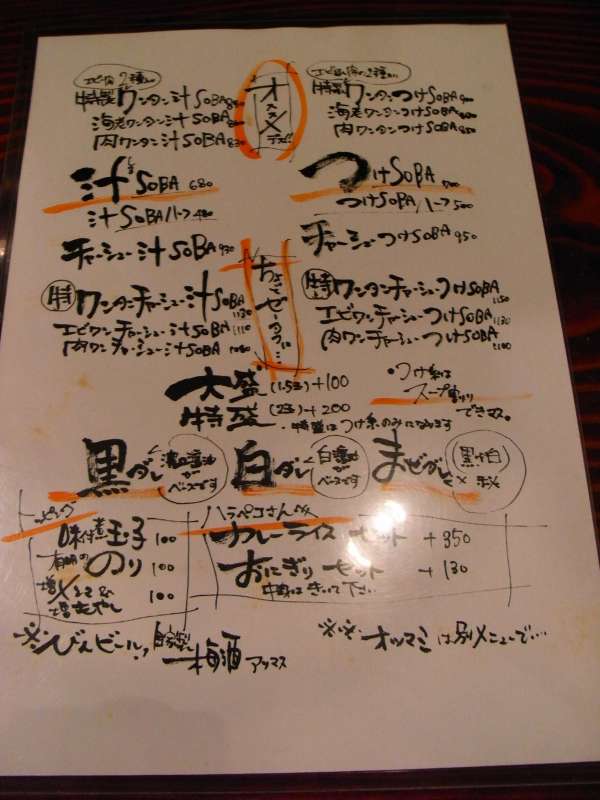 オススメデス!!
エビ・肉 2種入り
特製ワンタン汁SOBA
海老ワンタン汁SOBA
肉ワンタン汁SOBA 830
汁SOBA 680
汁SOBAハーフ 480
チャーシュー汁SOBA 930
特ワンタンチャーシュー汁SOBA 1130
エビワンチャーシュー汁SOBA 1110
肉ワンチャーシュー汁SOBA 1080
特製ワンタンつけSOBA
海老ワンタンつけSOBA
肉ワンタンつけSOBA 850
つけSOBA 700
つけSOBAハーフ 500
チャーシューつけSOBA 950
特ワンタンチャーシューつけSOBA 1150
エビワンチャーシューつけSOBA 1130
肉ワンチャーシューつけSOBA 1100
ちょっとぜーたくに…
大盛(1.5玉)+100
特盛(2玉)+200
・特盛はつけ系のみになります
・つけ系は
スープ割り
できマス。
黒ダレ
濃口醤油がベースです
白ダレ
白醤油がベースです
まぜダレ
黒×白
トッピング
味付煮玉子 100
有明ののり 100
増メンマ
増もやし 100
ハラペコさん
カレーライス セット +350
おにぎり セット +130
中身はきいて下さい
※びんビール,自家製梅酒アリマス
※※オツマミは別メニューで…